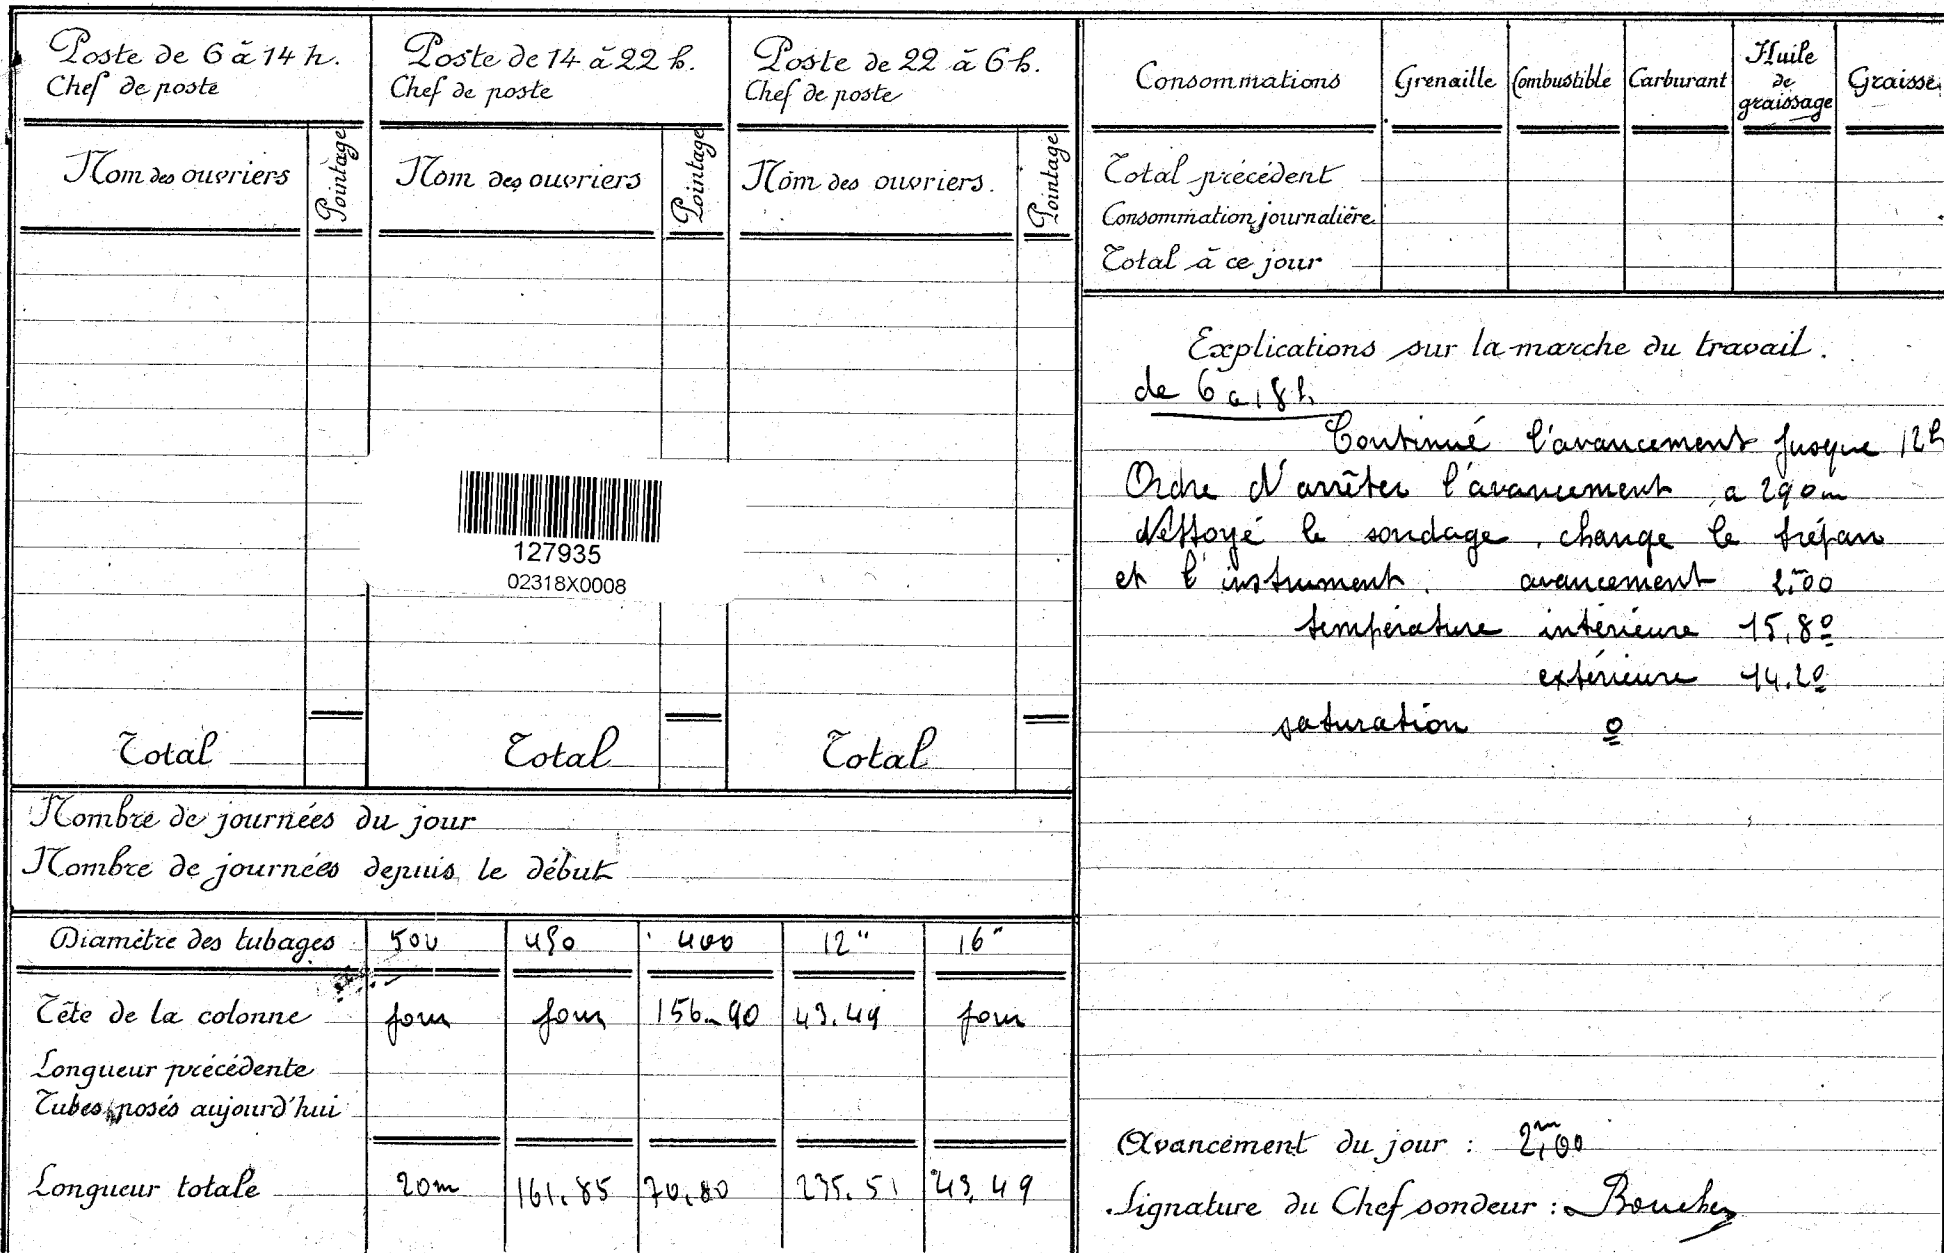 Poste de 6 à 14 h.
Chef de poste
Nom des ouvriers
Pointage
Poste de 14 à 22 h.
Chef de poste
Nom des ouvriers
Pointage
Poste de 22 à 6 h.
Chef de poste
Nom des ouvriers.
Pointage
127935
02318X0008
Total
Total
Total
Nombre de journées du jour
Nombre de journées depuis le début
Diamètre des tubages 500 450 400 12" 16"
Tête de la colonne jour jour 156.90 43.49 jour
Longueur précédente
Tubes posés aujourd'hui
Longueur totale 20m 161.85 70,80 235.51 43,49
Consommations Grenaille Combustible Carburant Huile de graissage Graisse
Total précédent
Consommation journalière
Total à ce jour
Explications sur la marche du travail.
de 6 a 18 h
Continué l'avancement jusque 12h
Ordre d'arrêter l'avancement a 290m
Nettoyé le sondage, change le trépan
et l'instrument. avancement 2m00
température intérieure 15,8º
extérieure 14.2º
saturation 0
Avancement du jour : 2m,00
Signature du Chef sondeur :